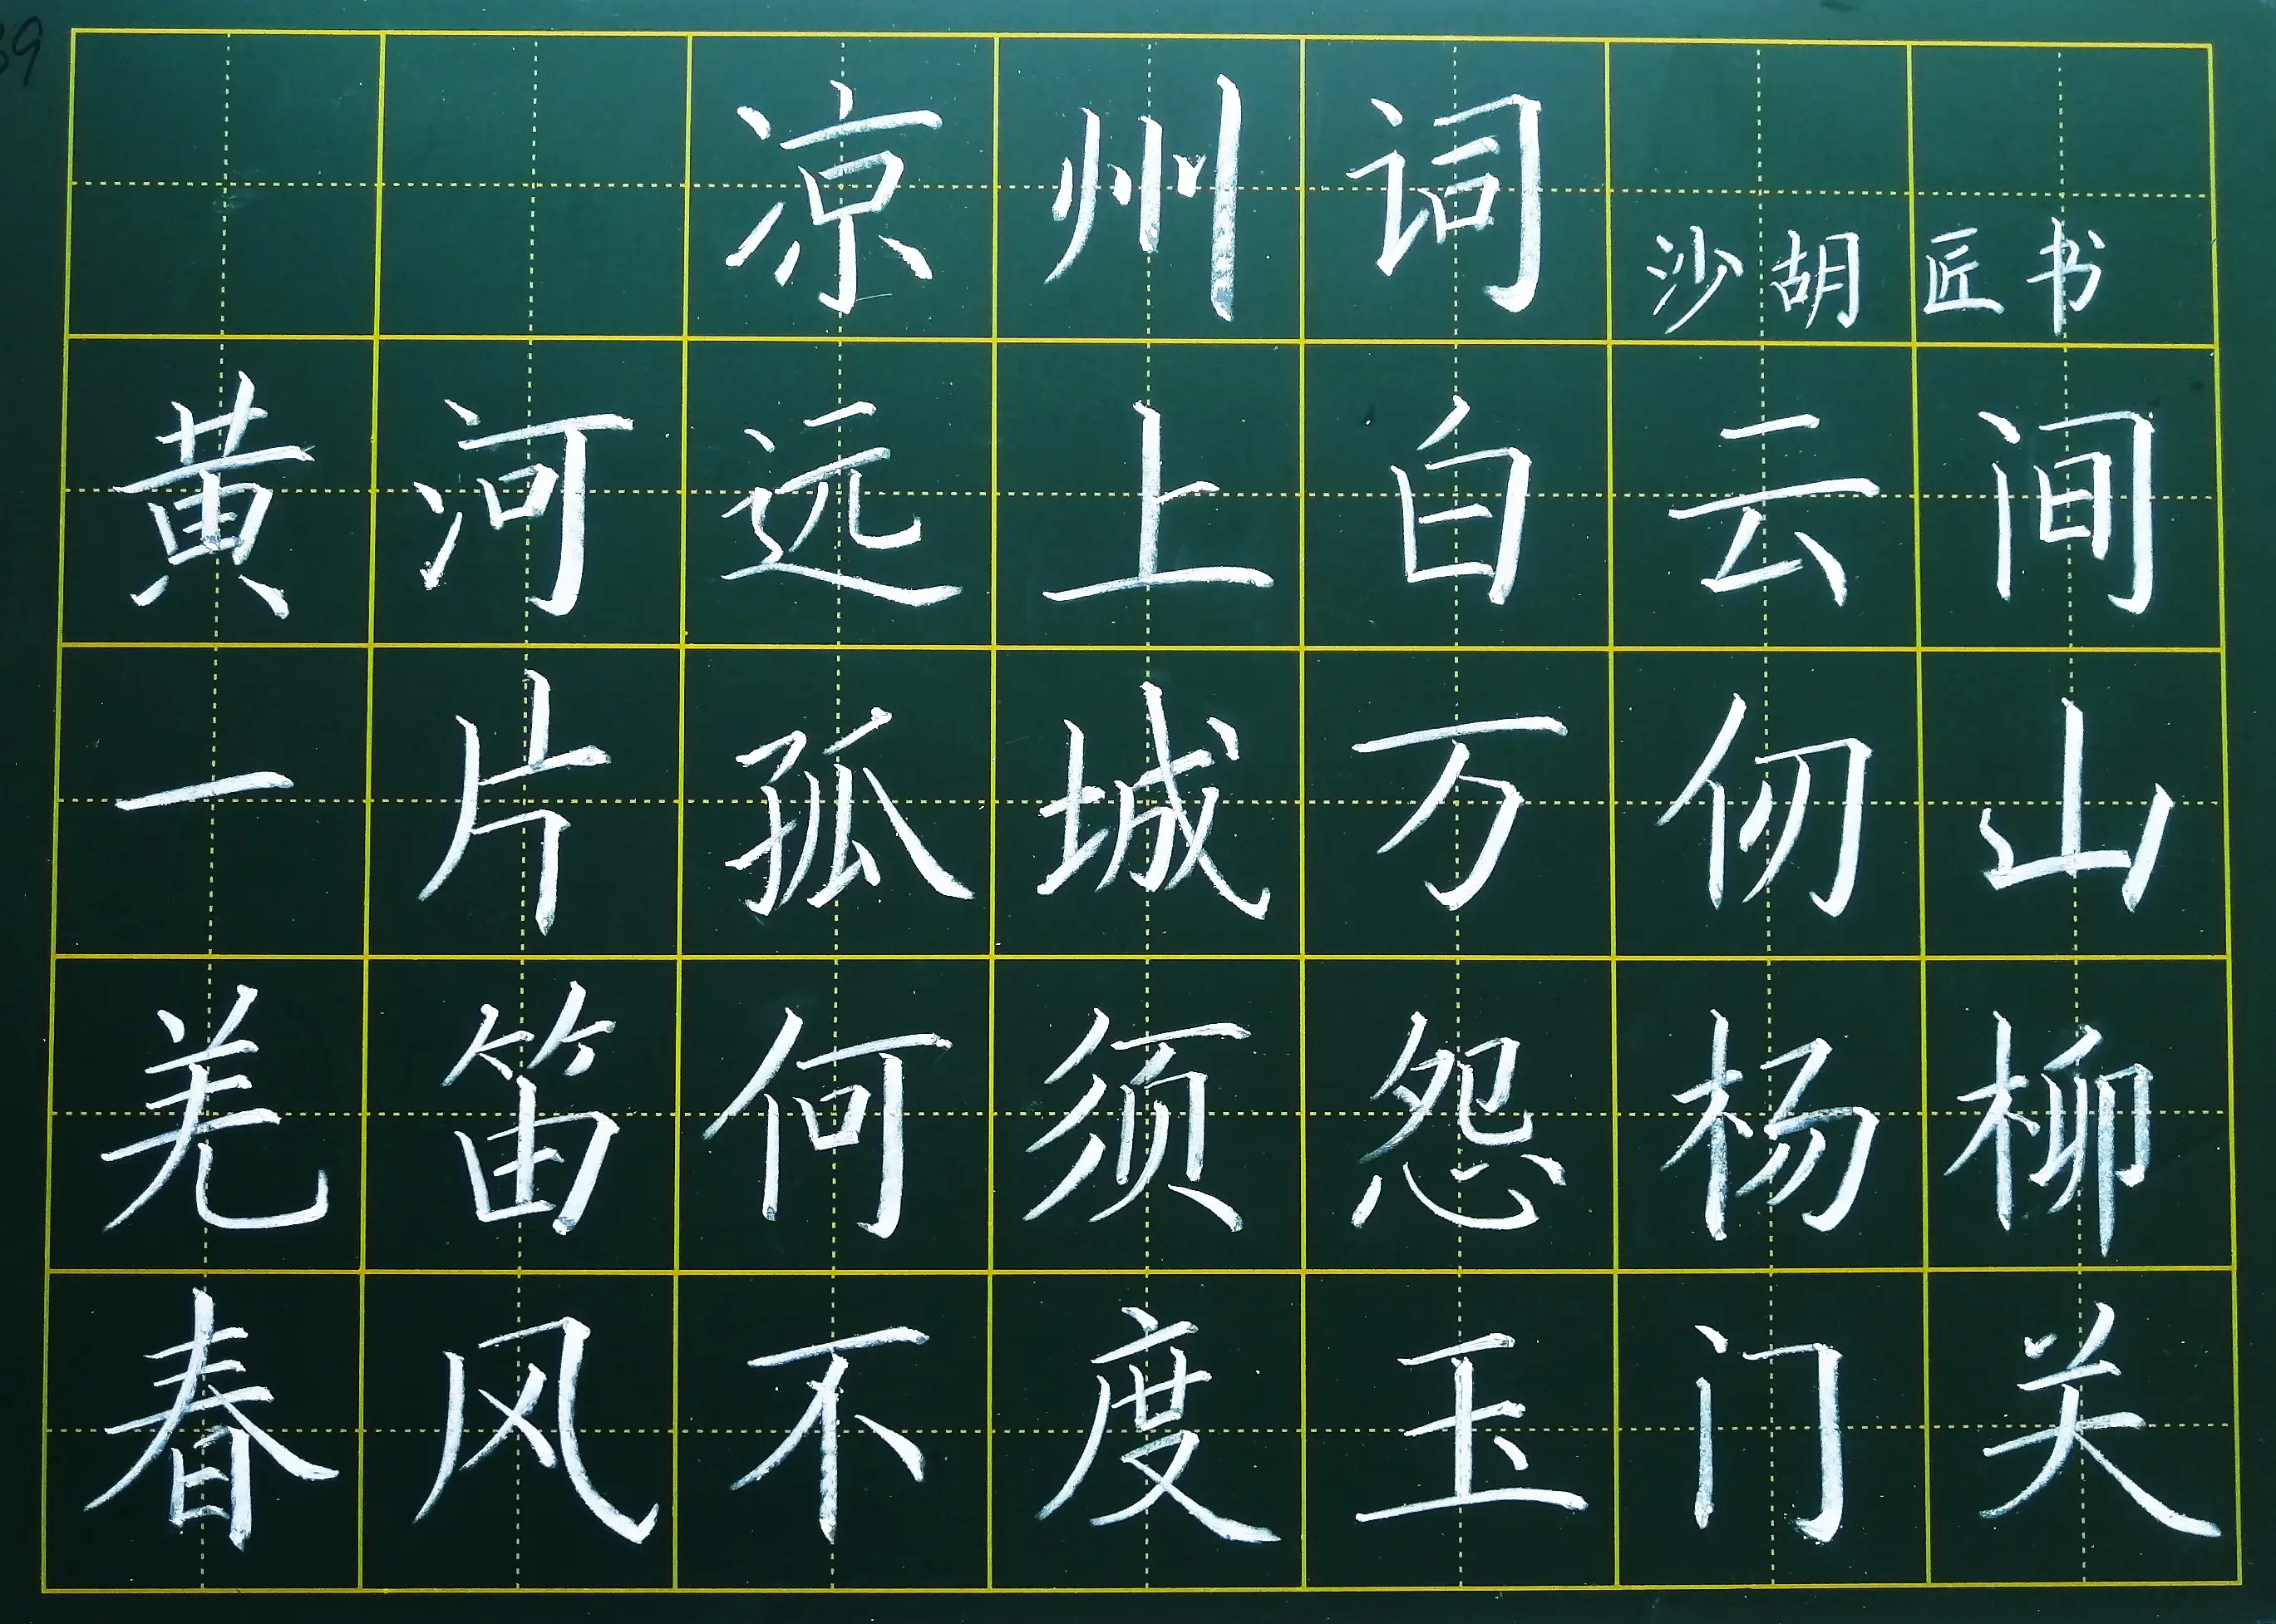 凉州词 沙胡匠书
黄河远上白云间
一片孤城万仞山
羌笛何须怨杨柳
春风不度玉门关